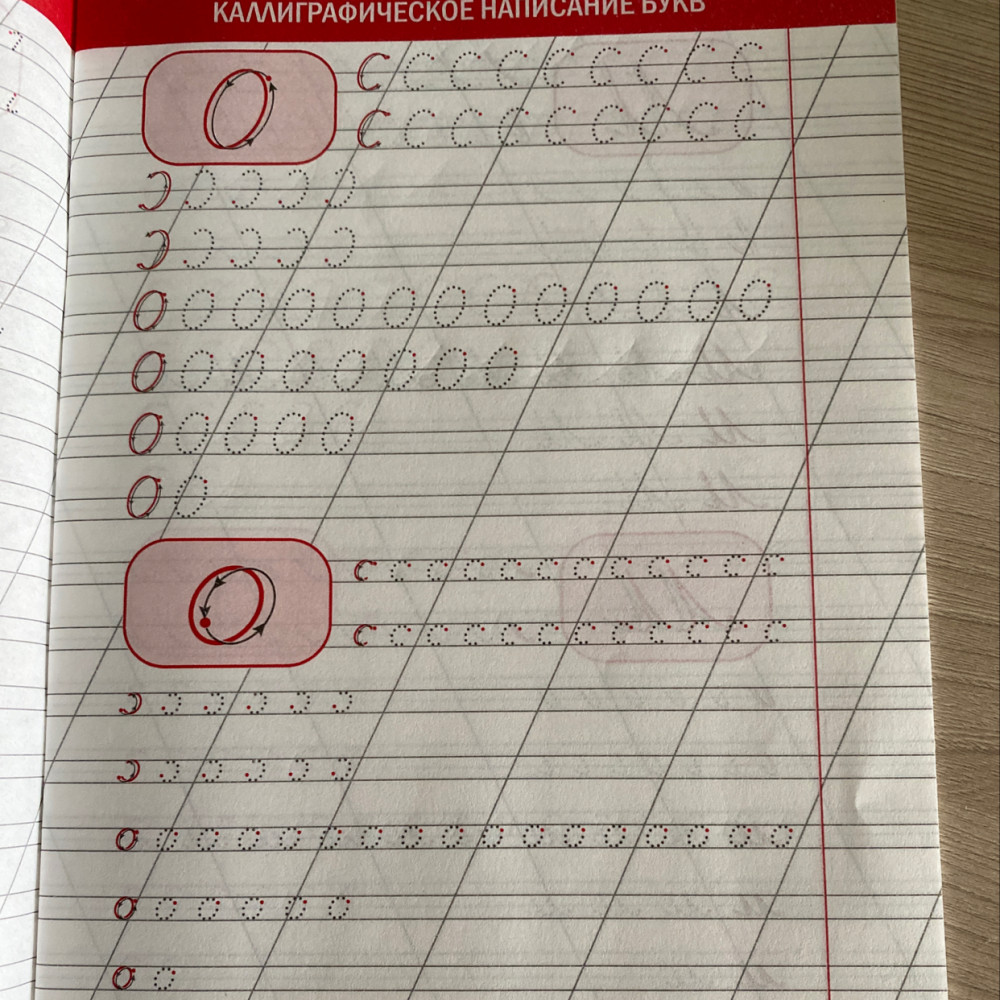 КАЛЛИГРАФИЧЕСКОЕ НАПИСАНИЕ БУКВ
О
С С С С С С С С С
С С С С С С С С С
Ɔ Ɔ Ɔ Ɔ Ɔ
Ɔ Ɔ Ɔ Ɔ Ɔ
О О О О О О О О О О О О О
О О О О О О О О
О О О О О
О О
о
с с с с с с с с с с с с
с с с с с с с с с с с с
ɔ ɔ ɔ ɔ ɔ ɔ
ɔ ɔ ɔ ɔ ɔ ɔ
о о о о о о о о о о о о о о о о о
о о о о о о
о о